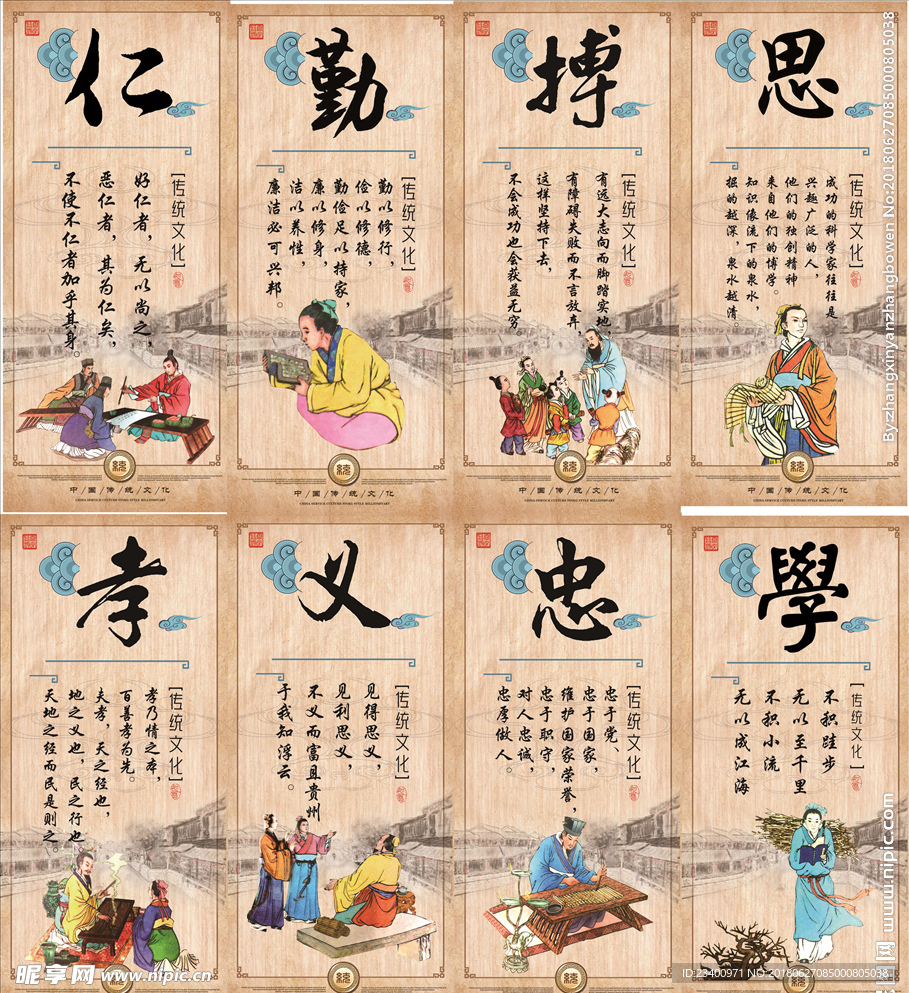 仁
[传统文化]
好仁者，无以尚之，
恶仁者，其为仁矣，
不使不仁者加乎其身。
中/国/传/统/文/化
勤
[传统文化]
勤以修行，
俭以修德，
勤俭足以持家，
廉以修身，
洁以养性，
廉洁必可兴邦。
中/国/传/统/文/化
搏
[传统文化]
有远大志向而脚踏实地，
有障碍失败而不言放弃，
这样坚持下去，
不会成功也会获益无穷。
中/国/传/统/文/化
思
[传统文化]
成功的科学家往往是
兴趣广泛的人，
他们的独创精神
来自他们的博学。
知识像流下的泉水，
掘的越深，泉水越清。
中/国/传/统/文/化
孝
[传统文化]
孝乃情之本，
百善孝为先。
夫孝，天之经也，
地之义也，民之行也
天地之经而民是则之。
义
[传统文化]
见得思义，
见利思义，
不义而富且贵州
于我知浮云。
忠
[传统文化]
忠于党、
忠于国家，
维护国家荣誉，
忠于职守，
对人忠诚，
忠厚做人。
學
[传统文化]
不积跬步
无以至千里
不积小流
无以成江海
By:zhangxinyanzhangbowen No:20180627085000805038
昵享网 www.nipic.cn
www.nipic.com
ID:23400971 NO:20180627085000805038